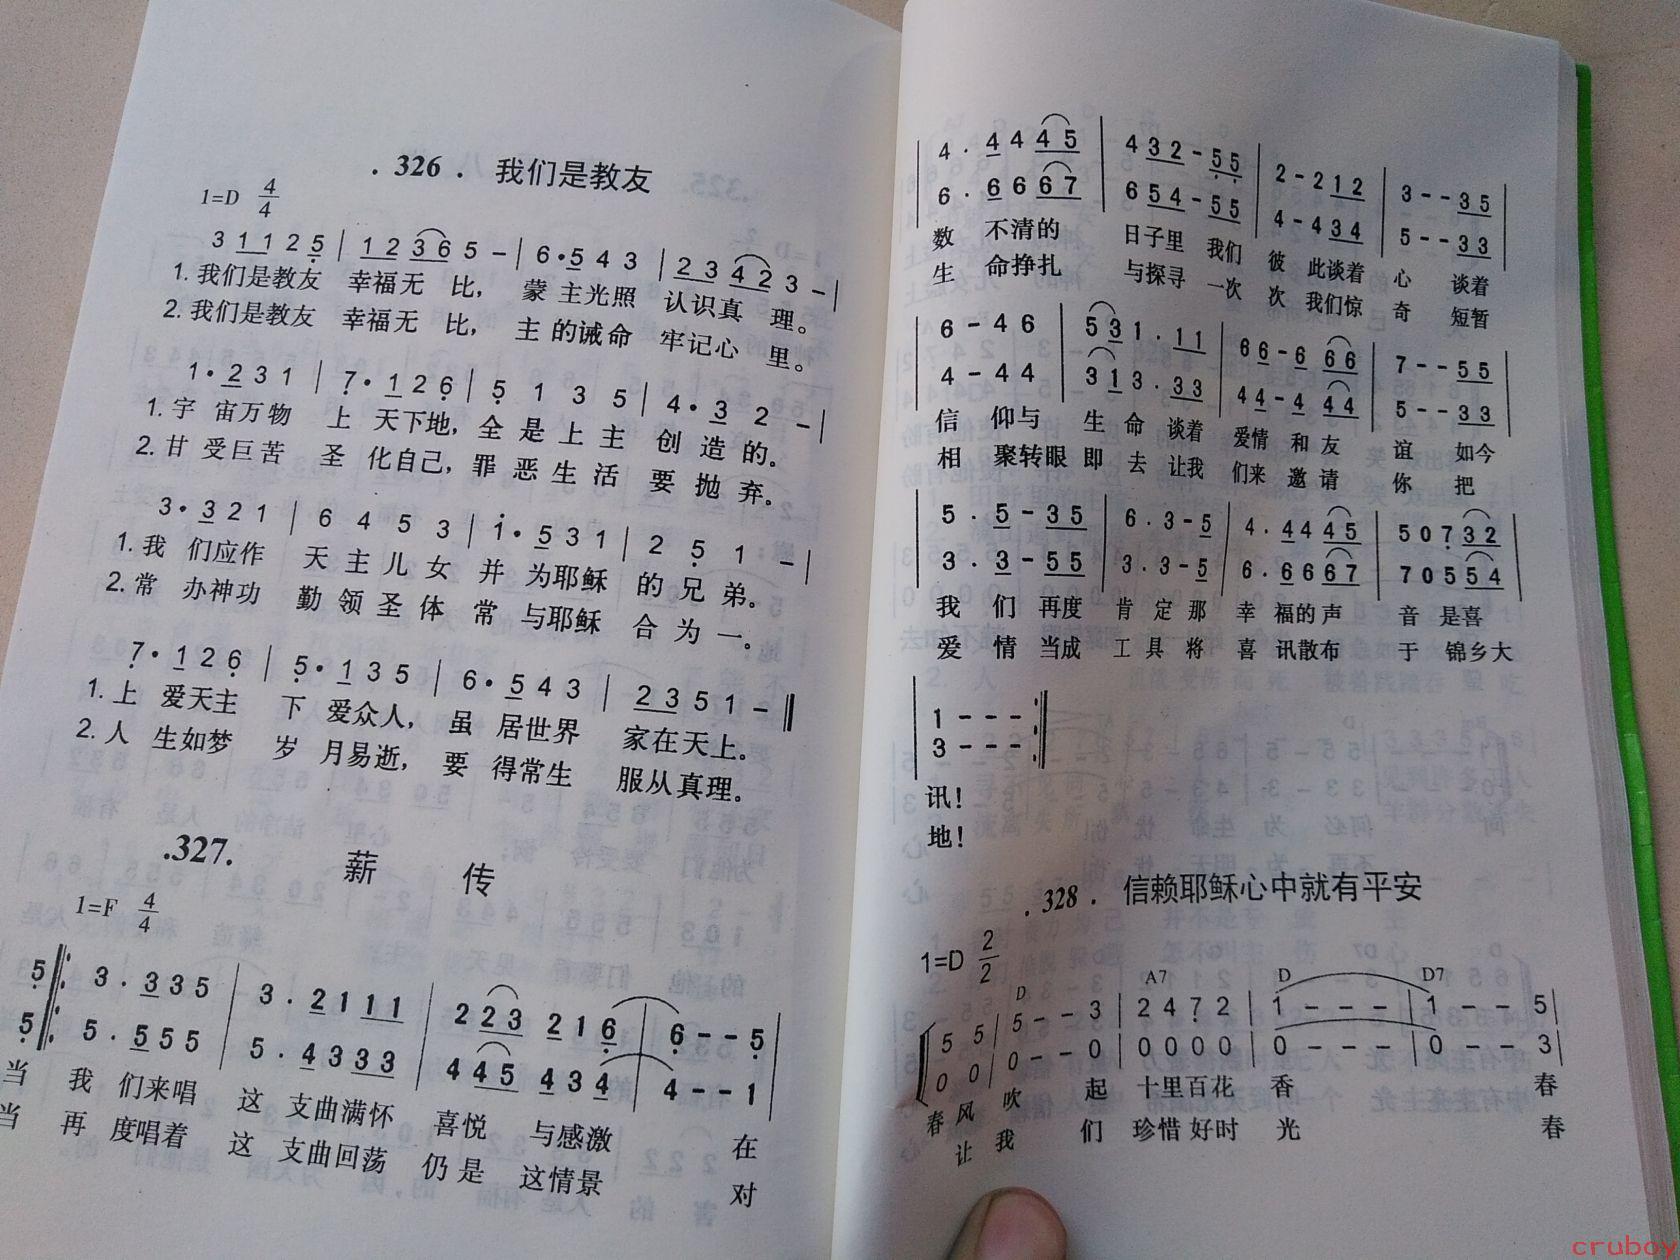 .326. 我们是教友
1=D 4/4
3 1 1 2 5 | 1 2 3 6 5 - | 6·5 4 3 | 2 3 4 2 3 - |
1.我们是教友 幸福无 比, 蒙 主光照 认识真 理。
2.我们是教友 幸福无 比, 主 的诫命 牢记心 里。
1·2 3 1 | 7·1 2 6 | 5 1 3 5 | 4·3 2 - |
1.宇 宙万物 上 天下地, 全 是 上 主 创 造 的。
2.甘 受巨苦 圣 化自己, 罪 恶 生 活 要 抛 弃。
3·3 2 1 | 6 4 5 3 | 1·5 3 1 | 2 5 1 - |
1.我 们应作 天 主 儿 女 并 为耶稣 的 兄 弟。
2.常 办神功 勤 领 圣 体 常 与耶稣 合 为 一。
7·1 2 6 | 5·1 3 5 | 6·5 4 3 | 2 3 5 1 - ‖
1.上 爱天主 下 爱众人, 虽 居世界 家在天上。
2.人 生如梦 岁 月易逝, 要 得常生 服从真理。
.327. 薪 传
1=F 4/4
5 ‖: 3 . 3 3 5 | 3 . 2 1 1 1 | 2 2 3 2 1 6 | 6 - - 5 |
5 ‖: 5 . 5 5 5 | 5 . 4 3 3 3 | 4 4 5 4 3 4 | 4 - - 1 |
当 我 们来唱 这 支曲满怀 喜悦 与感激 在
当 再 度唱着 这 支曲回荡 仍是 这情景 对
| 4 . 4 4 4 5 | 4 3 2 - 5 5 | 2 - 2 1 2 | 3 - - 3 5 |
| 6 . 6 6 6 7 | 6 5 4 - 5 5 | 4 - 4 3 4 | 5 - - 3 3 |
数 不清的 日子里 我们 彼 此谈着 心 谈着
生 命挣扎 与探寻 一次 次 我们惊 奇 短暂
| 6 - 4 6 | 5 3 1 . 1 1 | 6 6 - 6 6 6 | 7 - - 5 5 |
| 4 - 4 4 | 3 1 3 . 3 3 | 4 4 - 4 4 4 | 5 - - 3 3 |
信 仰与 生 命 谈着 爱情 和 友 谊 如今
相 聚转眼 即 去 让我 们来 邀 请 你 把
| 5 . 5 - 3 5 | 6 . 3 - 5 | 4 . 4 4 4 5 | 5 0 7 3 2 |
| 3 . 3 - 5 5 | 3 . 3 - 5 | 6 . 6 6 6 7 | 7 0 5 5 4 |
我 们 再度 肯 定 那 幸 福的声 音 是喜
爱 情 当成 工 具 将 喜 讯散布 于 锦乡大
| 1 - - - :‖
| 3 - - - :‖
讯!
地!
.328. 信赖耶稣心中就有平安
1=D 2/2
D A7 D D7
5 5 | 5 - - 3 | 2 4 7 2 | 1 - - - | 1 - - 5 |
0 0 | 0 - - 0 | 0 0 0 0 | 0 - - - | 0 - - 3 |
春 风 吹 起 十里百花 香 春
让 我 们 珍惜好时 光 春
cruboy